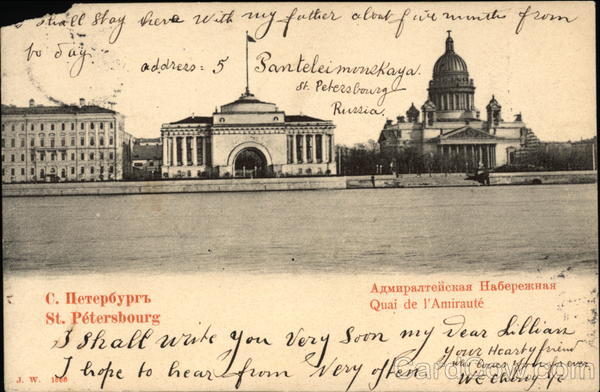 I shall stay here with my father about five months from
to day.
address: 5 Panteleimonskaya.
St. Petersbourg
Russia.
С. Петербургъ
St. Pétersbourg
Адмиралтейская Набережная
Quai de l'Amirauté
I shall write you very soon my dear Lillian
I hope to hear from very often
Your Hearty friend
who loves you for ever
J. W.
CardCow.com